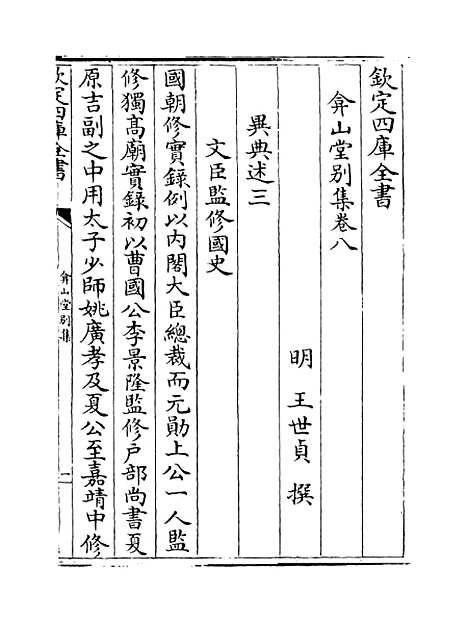 欽定四庫全書
弇山堂别集卷八
明 王世貞 撰
異典述三
文臣監修國史
國朝修實録例以内閣大臣總裁而元勛上公一人監
修獨髙廟實録初以曹國公李景隆監修户部尚書夏
原吉副之中用太子少師姚廣孝及夏公至嘉靖中修
欽定四庫全書
弇山堂别集
一